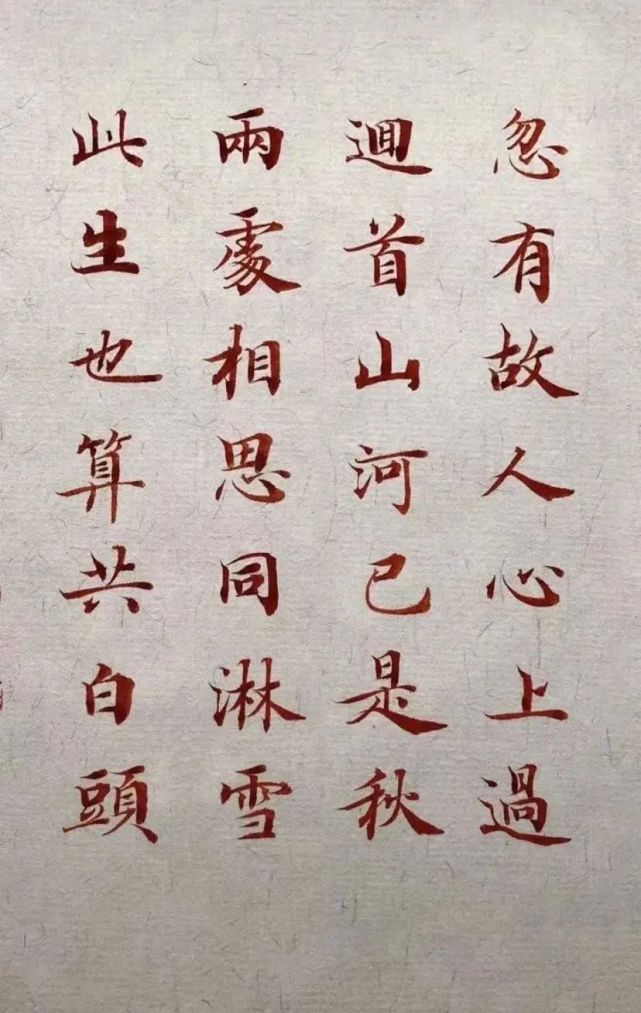 忽有故人心上過
迴首山河已是秋
兩處相思同淋雪
此生也算共白頭